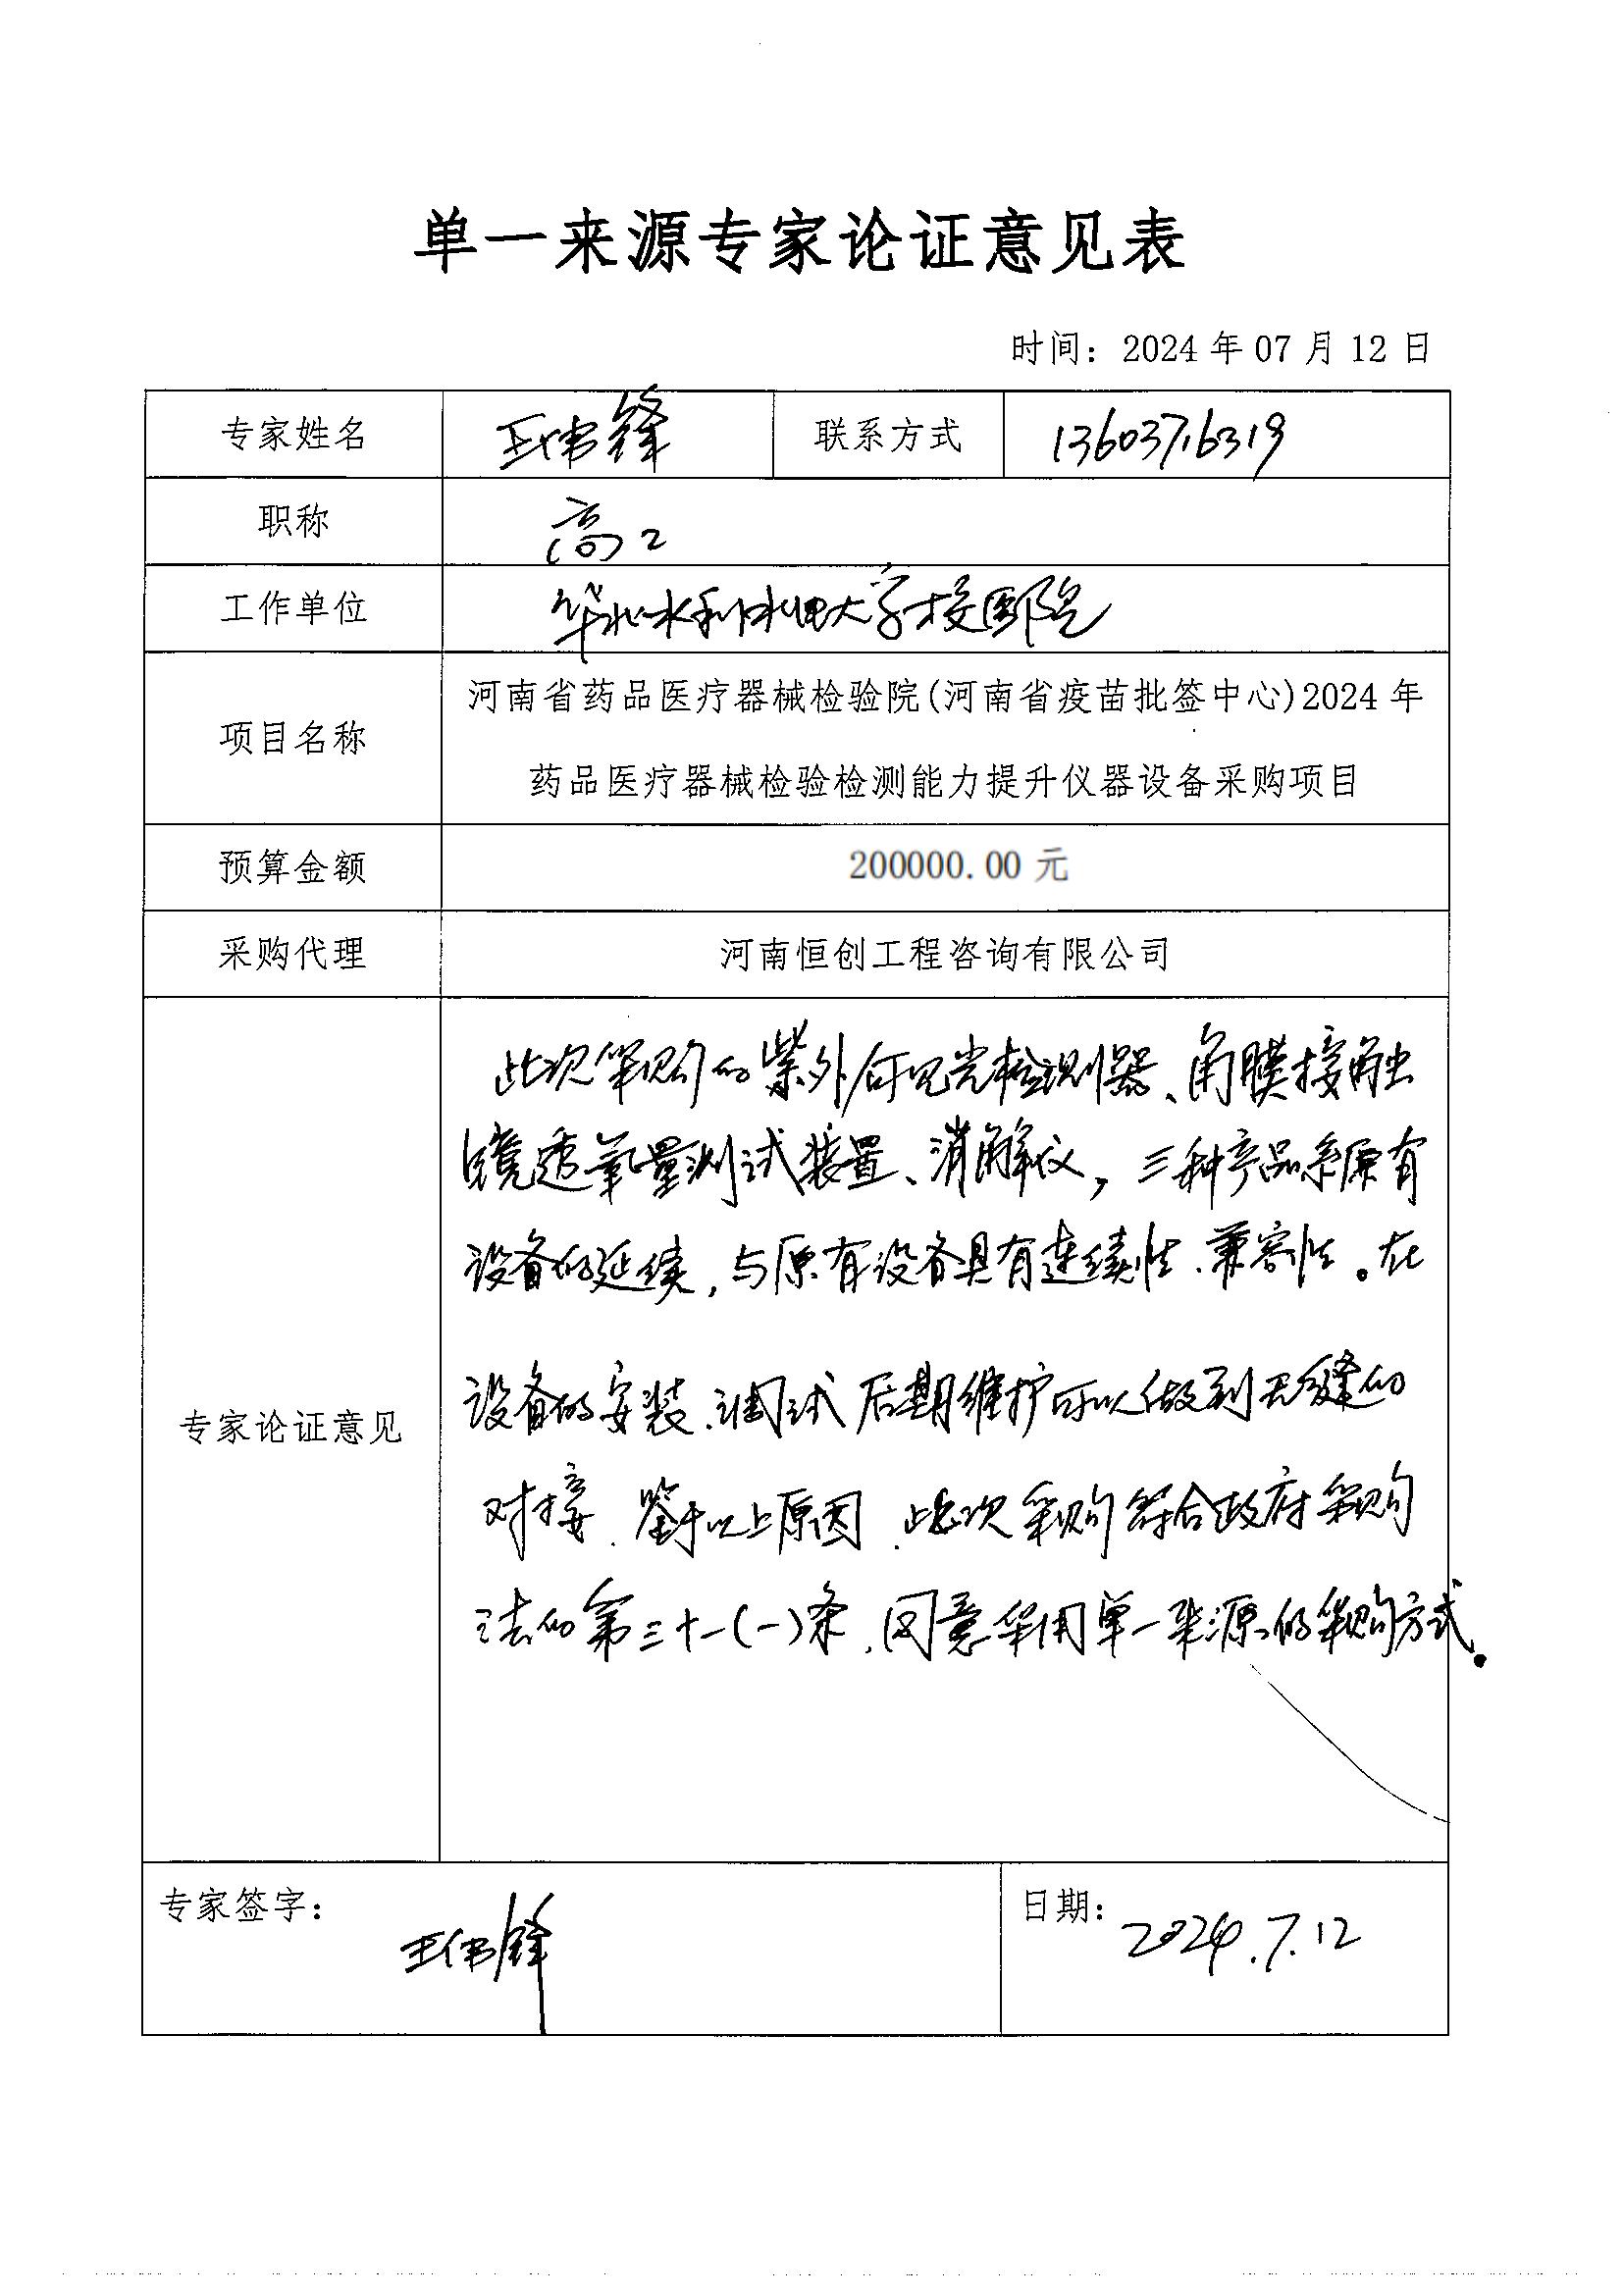 单一来源专家论证意见表
时间：2024 年 07 月 12 日
专家姓名 王伟锋 联系方式 13603716319
职称 高工
工作单位 华北水利水电大学校医院
项目名称 河南省药品医疗器械检验院(河南省疫苗批签中心)2024 年
药品医疗器械检验检测能力提升仪器设备采购项目
预算金额 200000.00 元
采购代理 河南恒创工程咨询有限公司
专家论证意见
此次采购的紫外/可见光检测器、角膜接触
镜透氧量测试装置、消解仪，三种产品系原有
设备的延续，与原有设备具有连续性、兼容性。在
设备的安装、调试后期维护可以做到无缝的
对接、鉴于以上原因、此次采购符合政府采购
法的第三十一(一)条，同意采用单一来源的采购方式。
专家签字： 王伟锋 日期： 2024.7.12